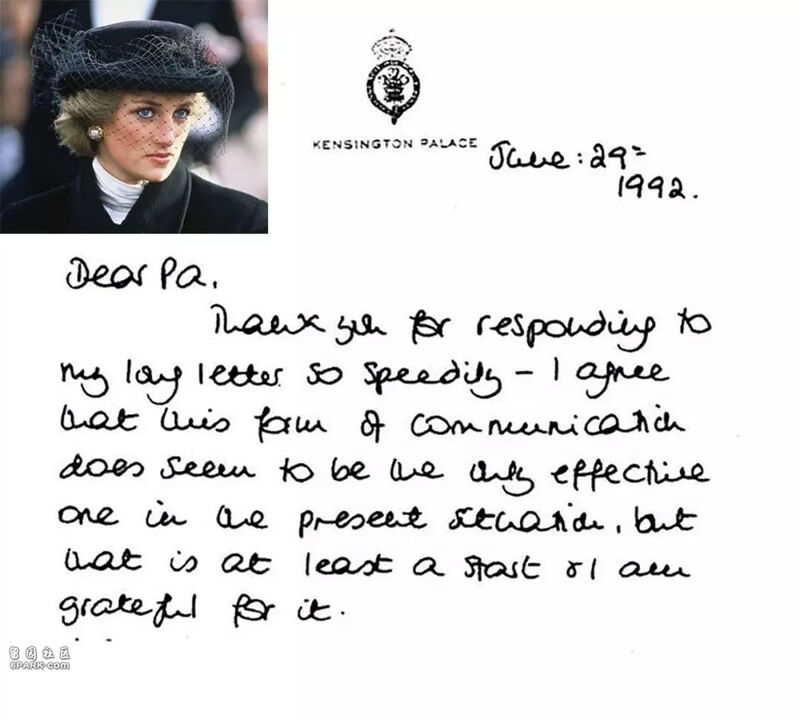 KENSINGTON PALACE
June: 29th
1992.
Dear Pa,
Thank you for responding to
my long letter so speedily – I agree
that this form of communication
does seem to be the only effective
one in the present situation, but
that is at least a start & I am
grateful for it.
留园社区
6PARK.com